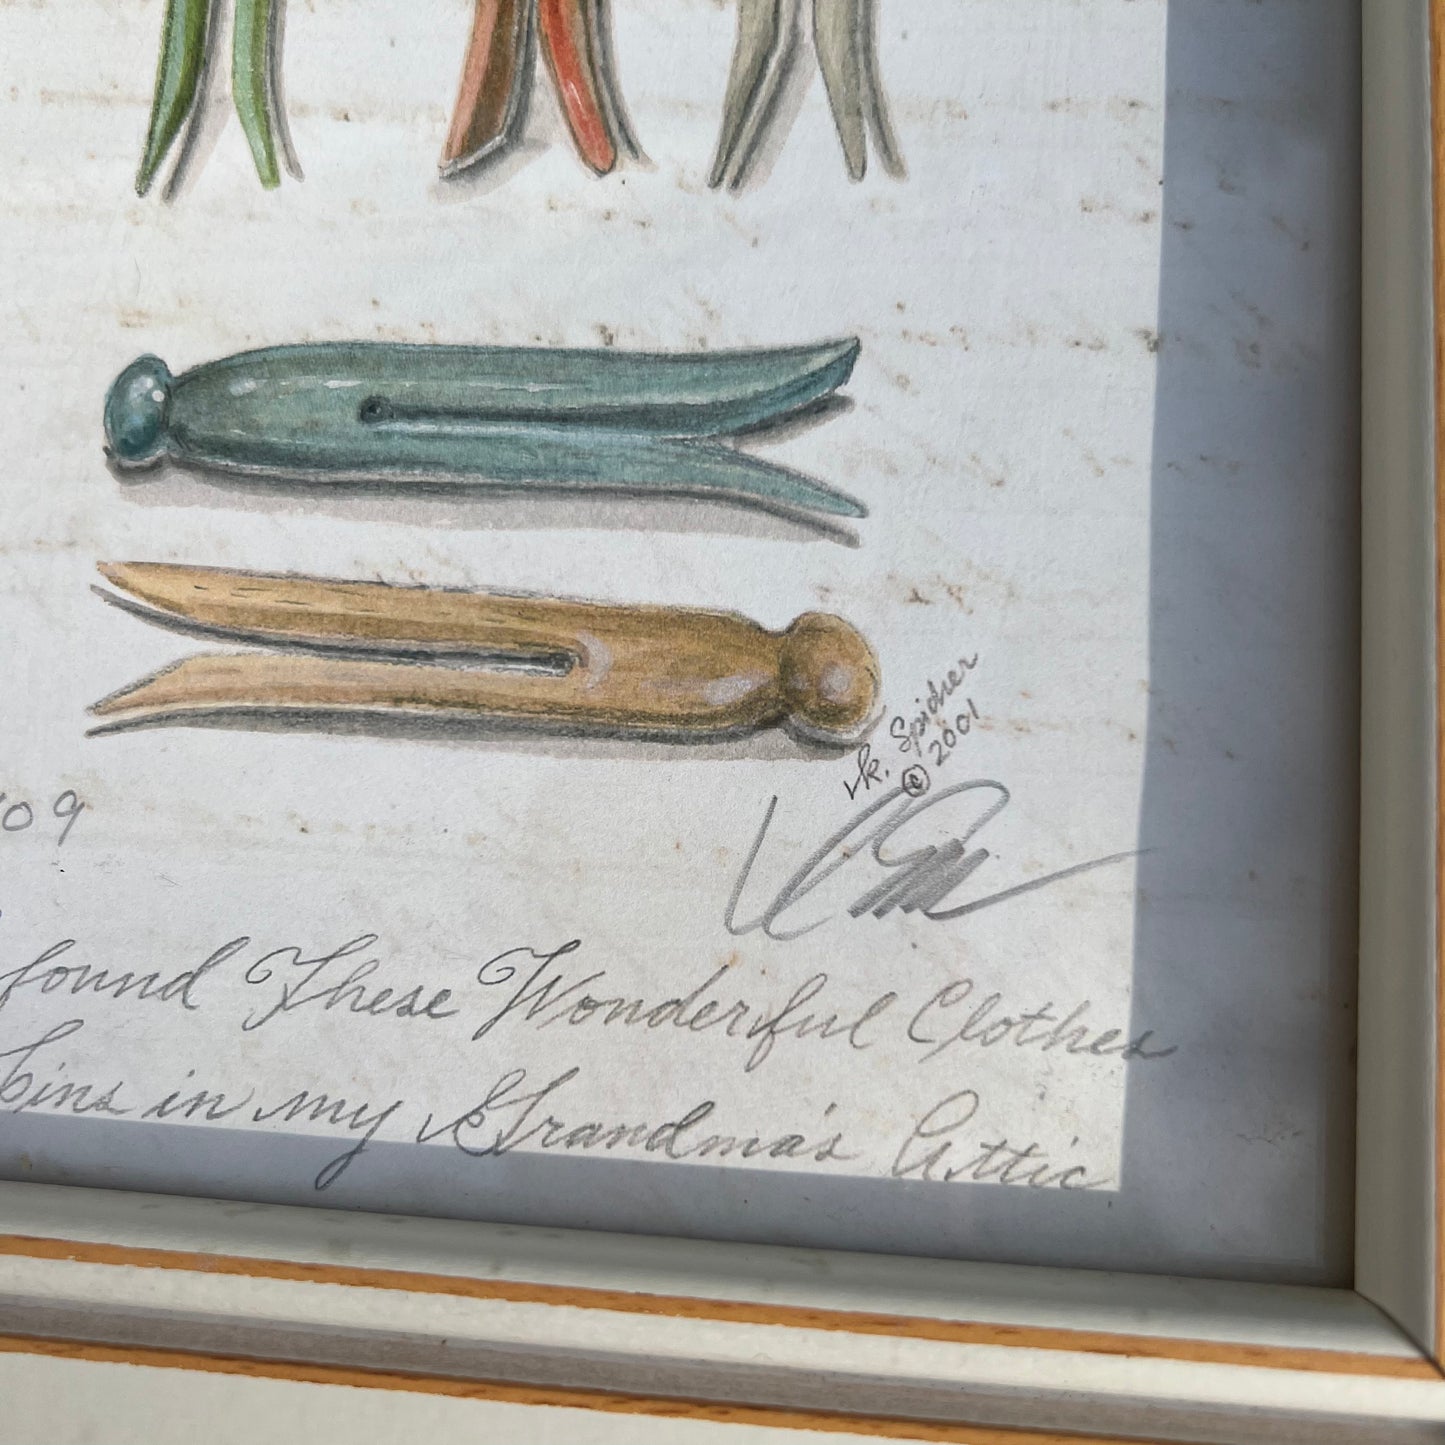 k. Spicher
© 2001
09
found These Wonderful Clothes
Pins in my Grandma's Attic